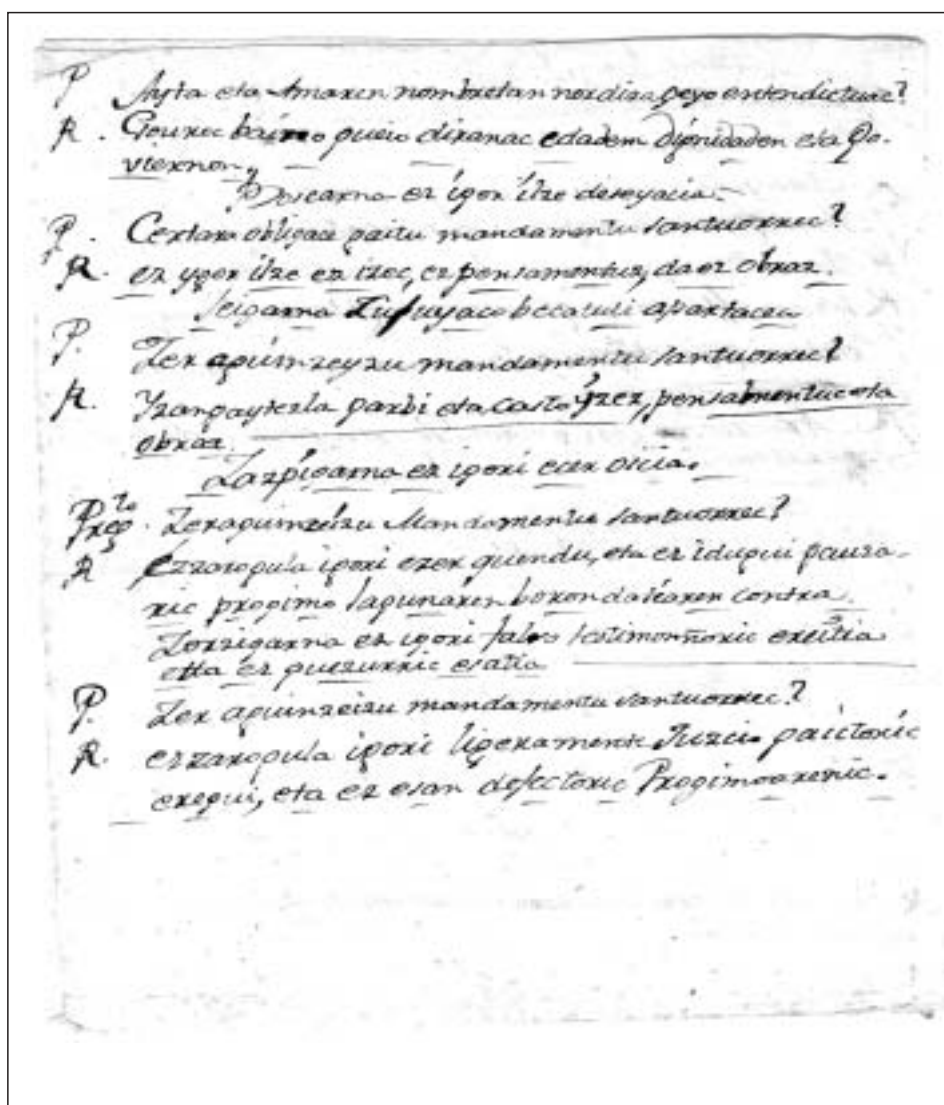 P Ayta eta Amaren nombretan nor dira geyo entendictuac?
R. Gourec baino gueio diranac edadem dignidaden eta Go-
viernon,
Boscarna ez igor ilze deseyacia.
P. Certara obligace gaitu mandamentu santuorrec?
R. ez ygor ilze ez izec, ez pensamentuz, da ez obraz.
Seigarna Lusuyaco becatuti apartacea
P. Zer aguinzeyzu mandamentu santuorrec?
R. Yzangayterla garbi eta casto ÿzez, pensabmentuc eta
obraz.
Zazpigarna ez igori ecer osicia.
Preg.to Zer aguinzeizu Mandamentu santuorrec?
R Ezzarogula igori ezer quendu, eta ez idugui gauza-
ric progimo lagunaren borondatéaren contra.
Zorzigarna ez igori falso testimonnoric erecitia
etta ez guezurric esatia
P. Zer aguinzeizu mandamentu santuorrec?
R. ezzarogula igori ligeramente Juzcio gaictoric
eregui, eta ez esan defectoric Progimoarenic.